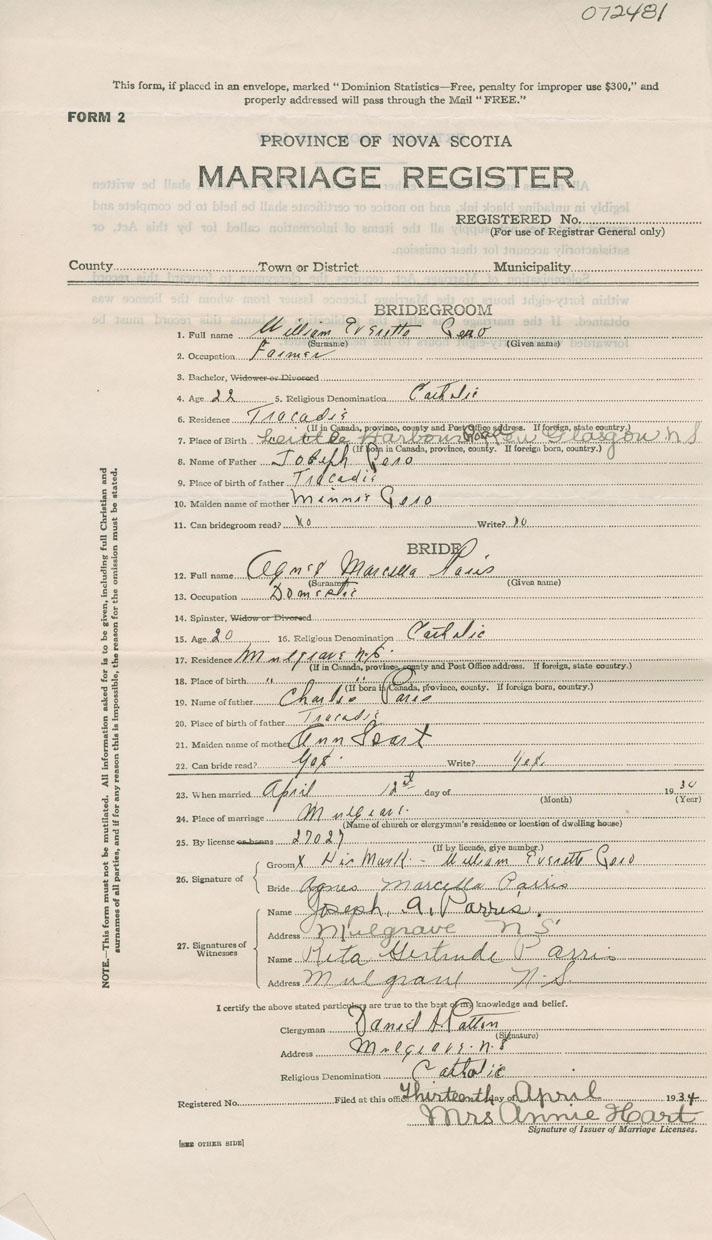 072481
This form, if placed in an envelope, marked "Dominion Statistics—Free, penalty for improper use $300," and
properly addressed will pass through the Mail "FREE."
FORM 2
PROVINCE OF NOVA SCOTIA
MARRIAGE REGISTER
REGISTERED No.
(For use of Registrar General only)
County Town or District Municipality
BRIDEGROOM
1. Full name William Everette Pero
(Surname) (Given name)
2. Occupation Farmer
3. Bachelor, Widower or Divorced
4. Age 22 5. Religious Denomination Catholic
6. Residence Tracadie
(If in Canada, province, county and Post Office address. If foreign, state country.)
7. Place of Birth Little Harbour Road New Glasgow N S
(If born in Canada, province, county. If foreign born, country.)
8. Name of Father Joseph Pero
9. Place of birth of father Tracadie
10. Maiden name of mother Minnie Pero
11. Can bridegroom read? No Write? No
BRIDE
12. Full name Agnes Marcella Paris
(Surname) (Given name)
13. Occupation Domestic
14. Spinster, Widow or Divorced
15. Age 20 16. Religious Denomination Catholic
17. Residence Mulgrave N.S.
(If in Canada, province, county and Post Office address. If foreign, state country.)
18. Place of birth " "
(If born in Canada, province, county. If foreign born, country.)
19. Name of father Charlie Paris
20. Place of birth of father Tracadie
21. Maiden name of mother Ann
22. Can bride read? Yes. Write? Yes.
23. When married April 12th day of 1934
(Month) (Year)
24. Place of marriage Mulgrave.
(Name of church or clergyman's residence or location of dwelling house)
25. By license or banns 27027
(If by license, give number.)
26. Signature of
Groom X His Mark - William Everette Pero
Bride Agnes Marcella Parris
27. Signatures of Witnesses
Name Joseph. A. Parris.
Address Mulgrave N S
Name Rita Gertrude Parris
Address Mulgrave N.S
I certify the above stated particulars are true to the best of my knowledge and belief.
Clergyman Daniel A Patton
(Signature)
Address Mulgrave. N.S
Religious Denomination Catholic
Registered No. Filed at this office Thirteenth day of April 1934
Mrs Annie Hart
Signature of Issuer of Marriage Licenses.
[SEE OTHER SIDE]
NOTE.—This form must not be mutilated. All information asked for is to be given, including full Christian and
surnames of all parties, and if for any reason this is impossible, the reason for the omission must be stated.